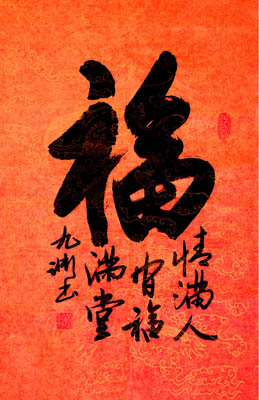 福
情满人
间福
满堂
九书